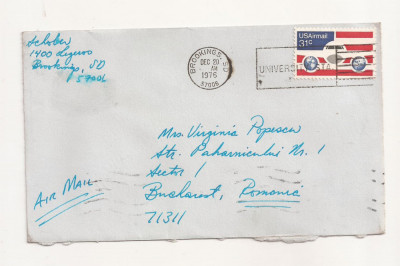 Schober
1400 
Brookings, SD
57006
BROOKINGS, SD
DEC 20
AM
1976
57006
USAirmail
31c
UNIVERS
Mrs. Virginia Popescu
Str. Paharnicului Nr. 1
Sector 1
Bucharest, Romania
71311
AIR MAIL